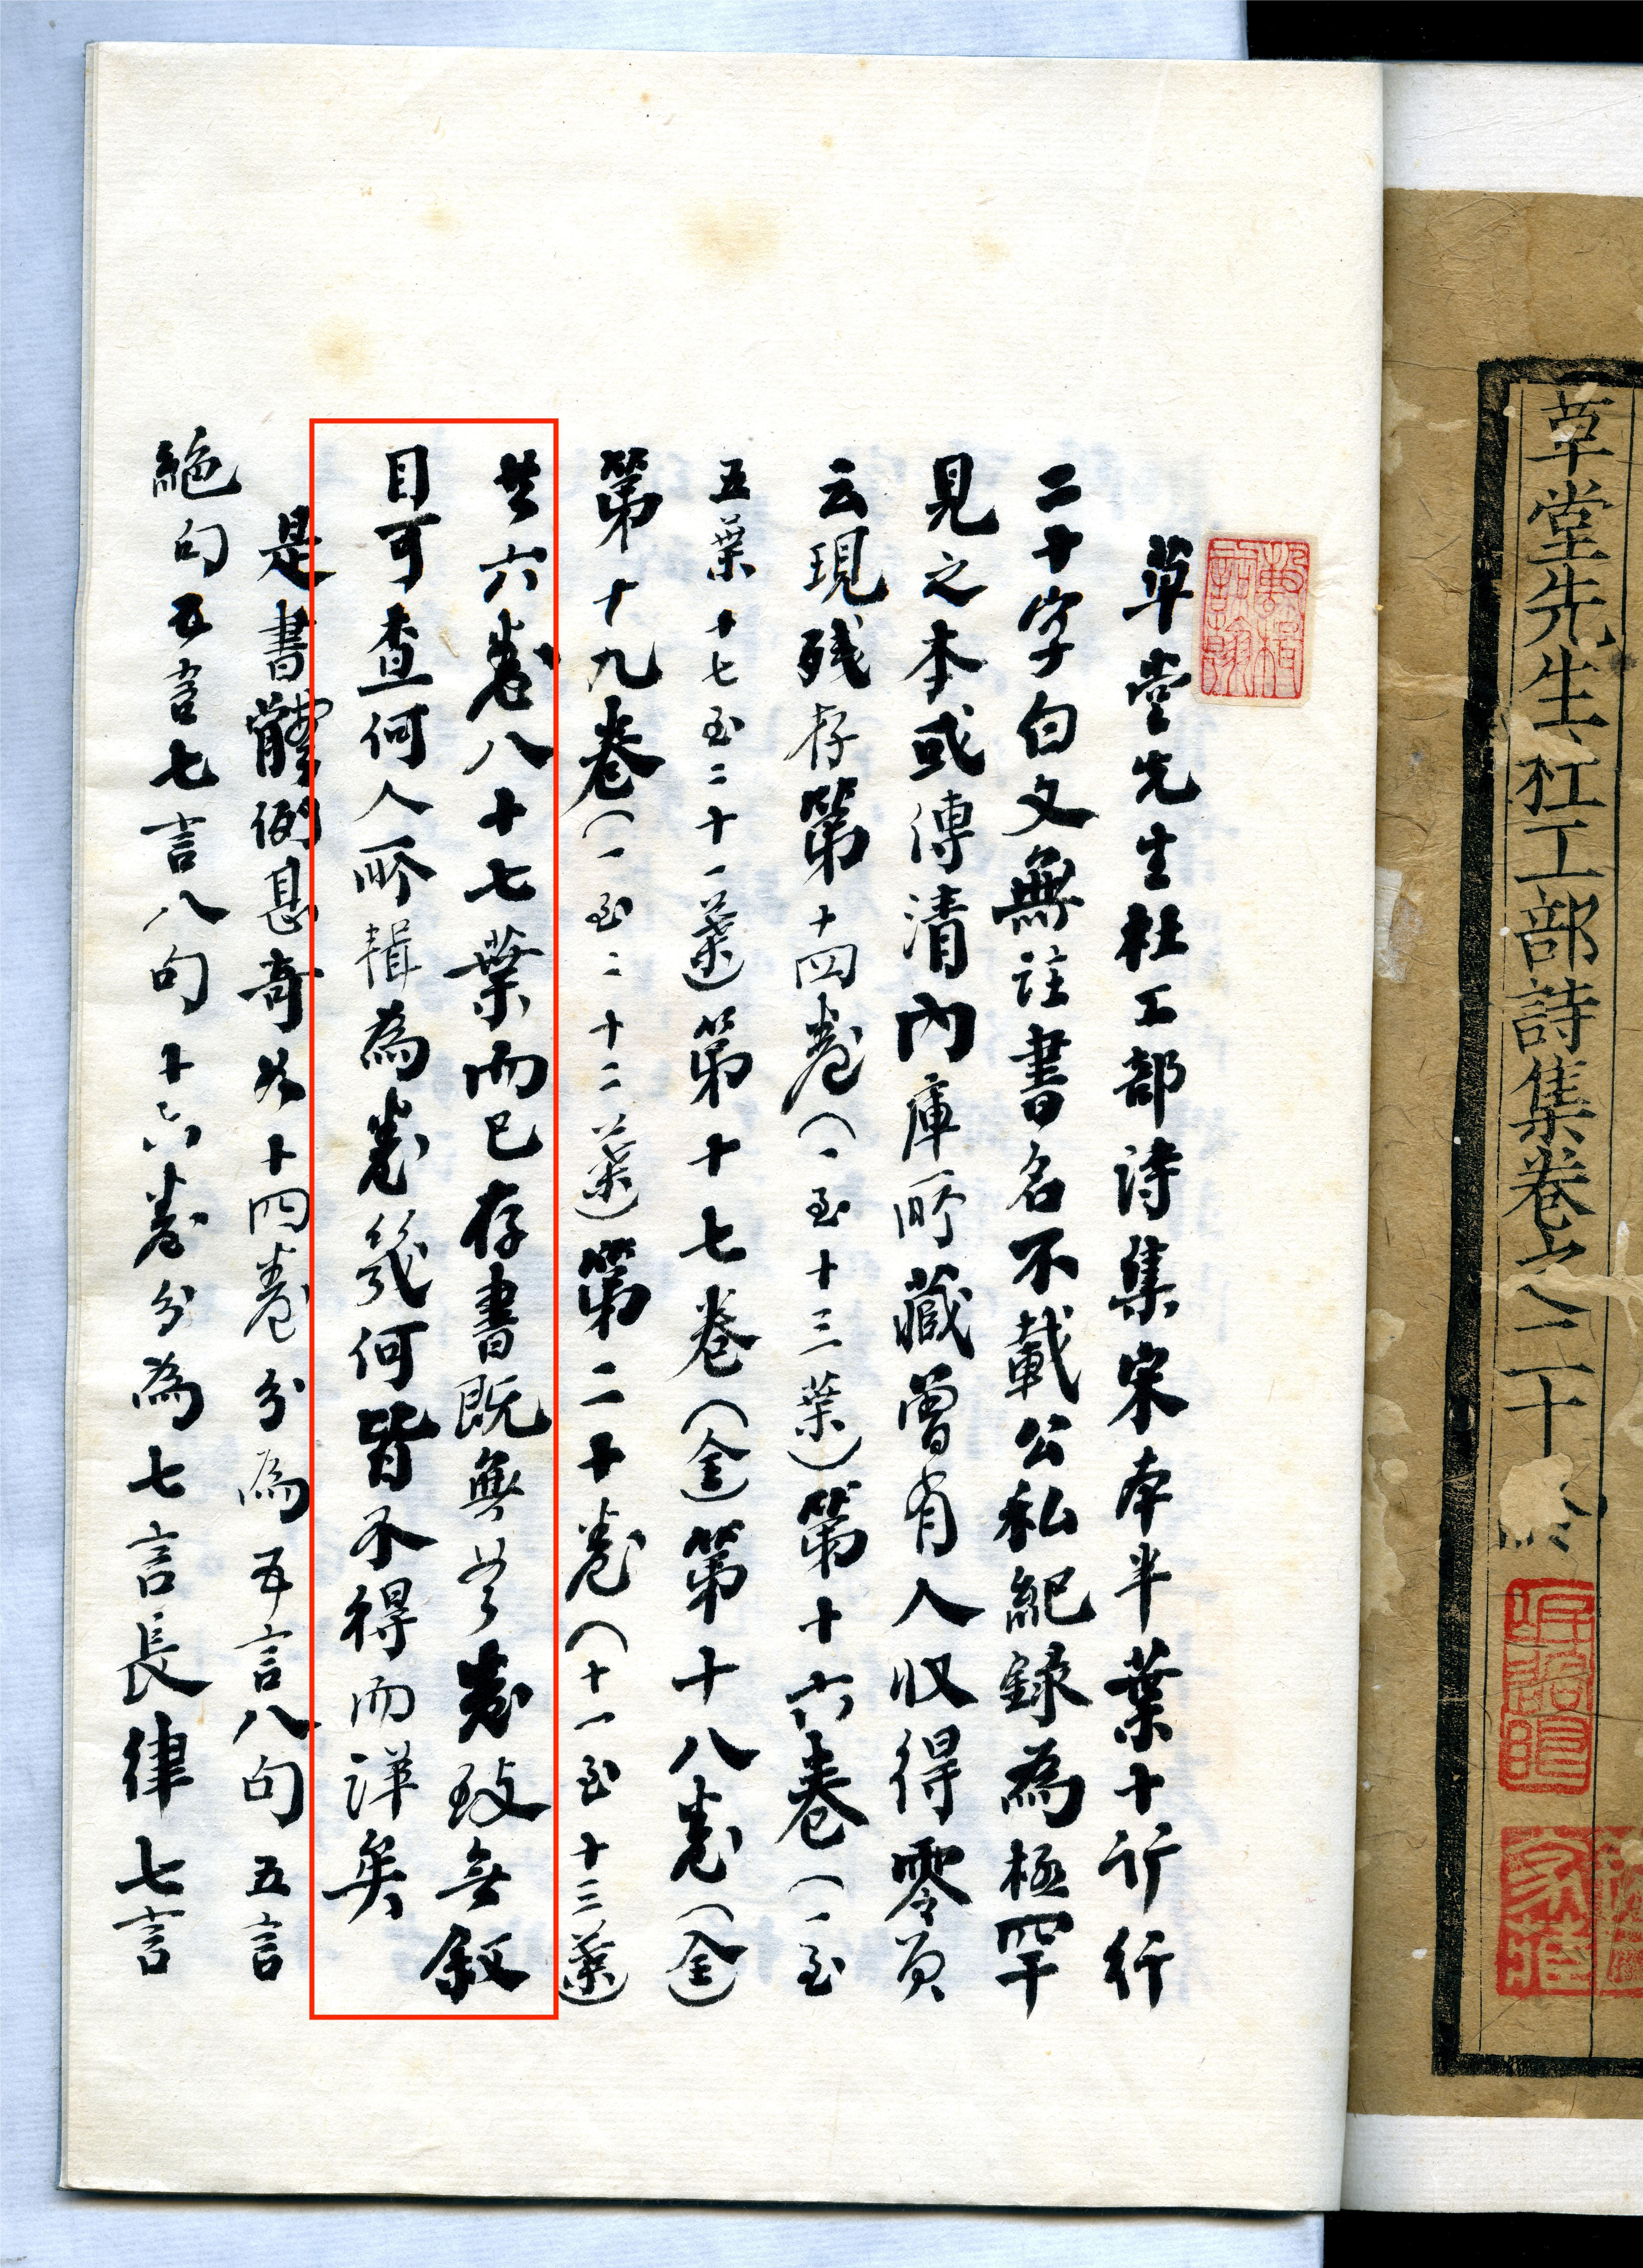 草堂先生杜工部詩集卷之二十
草堂先生杜工部詩集宋本半葉十行行
二十字白文無註書名不載公私紀錄為極罕
見之本或傳清內庫所藏曾有人收得零頁
云現殘存第十四卷(一至十三葉)第十六卷(一至
五葉十七至二十一葉)第十七卷(全)第十八卷(全)
第十九卷(一至二十二葉)第二十卷(十一至十三葉)
共六卷八十七葉而已存書既無首卷致無敘
目可查何人所輯為卷幾何皆不得而詳矣
是書體例甚奇如十四卷分為五言八句五言
絕句五言七言八句十六卷分為七言長律七言